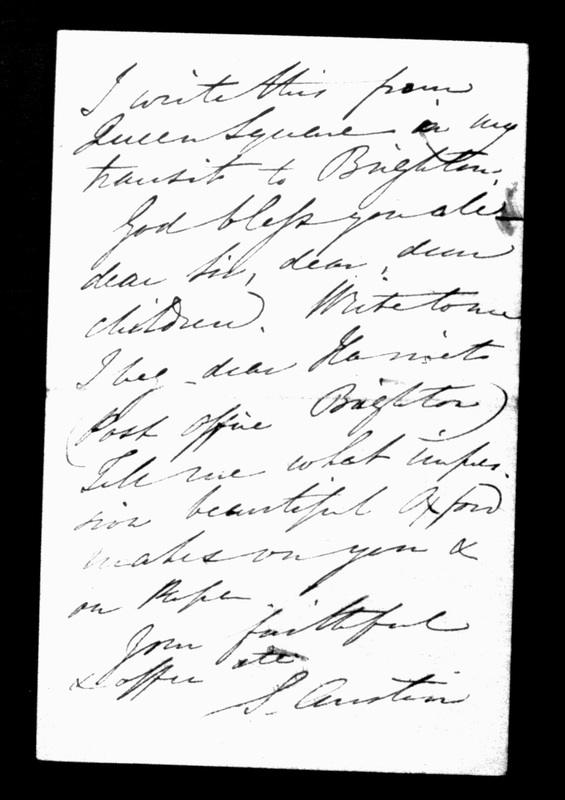 I write this from
Queen Square in my
transit to Brighton.
God bless you all
dear Sir, dear, dear
children. Write to me
I beg dear Harriet
(Post office Brighton)
Tell me what impres-
sion beautiful Oxford
makes on you &
on
Your faithful
& affec
S. Austin